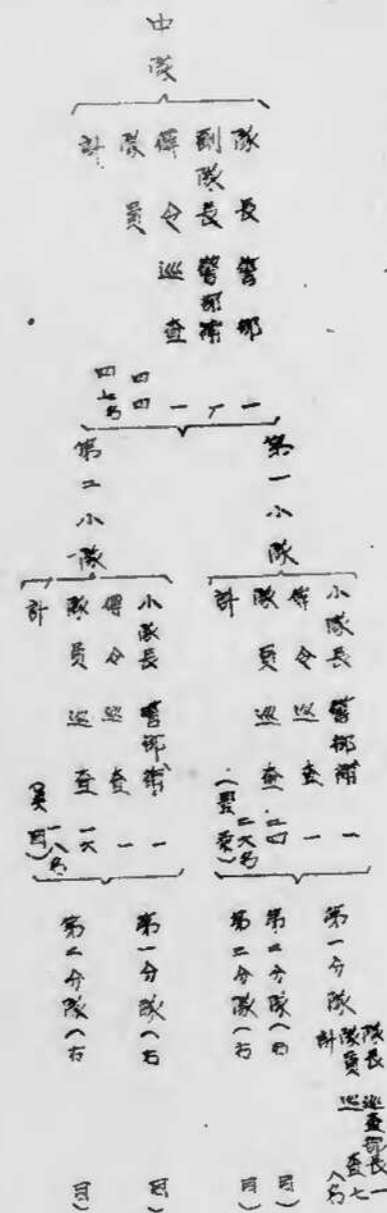 中隊
隊長 警部 一
副隊長 警部補 一
伝令 巡査 一
隊員 四四
計 四七名
第一小隊
小隊長 警部補 一
伝令 巡査 一
隊員 巡査 二四
計 二六名
第一分隊
隊長 巡査部長 一
隊員 巡査 七
計 八名
第二分隊(右 同)
第三分隊(右 同)
第二小隊
小隊長 警部補 一
伝令 巡査 一
隊員 巡査 一六
計 一八名
第一分隊(右 同)
第二分隊(右 同)